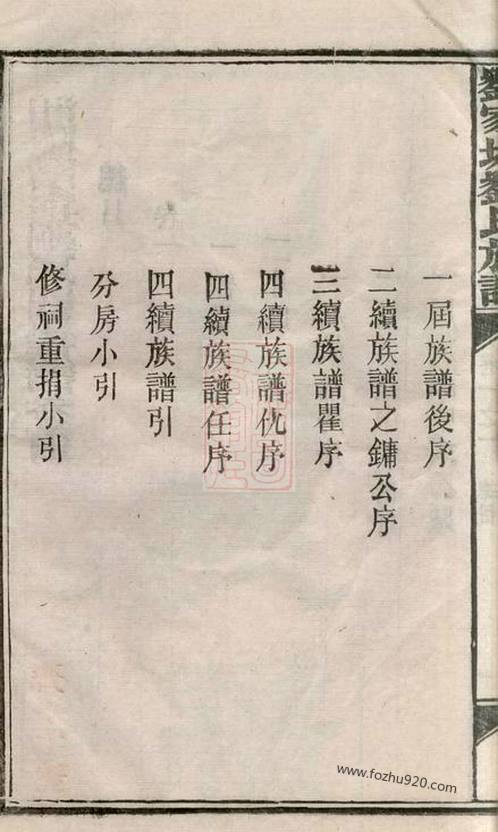 劉家塲劉氏族譜
一屆族譜後序
二續族譜之鏞公序
三續族譜瞿序
四續族譜仇序
四續族譜任序
四續族譜引
分房小引
修祠重捐小引
www.fozhu920.com